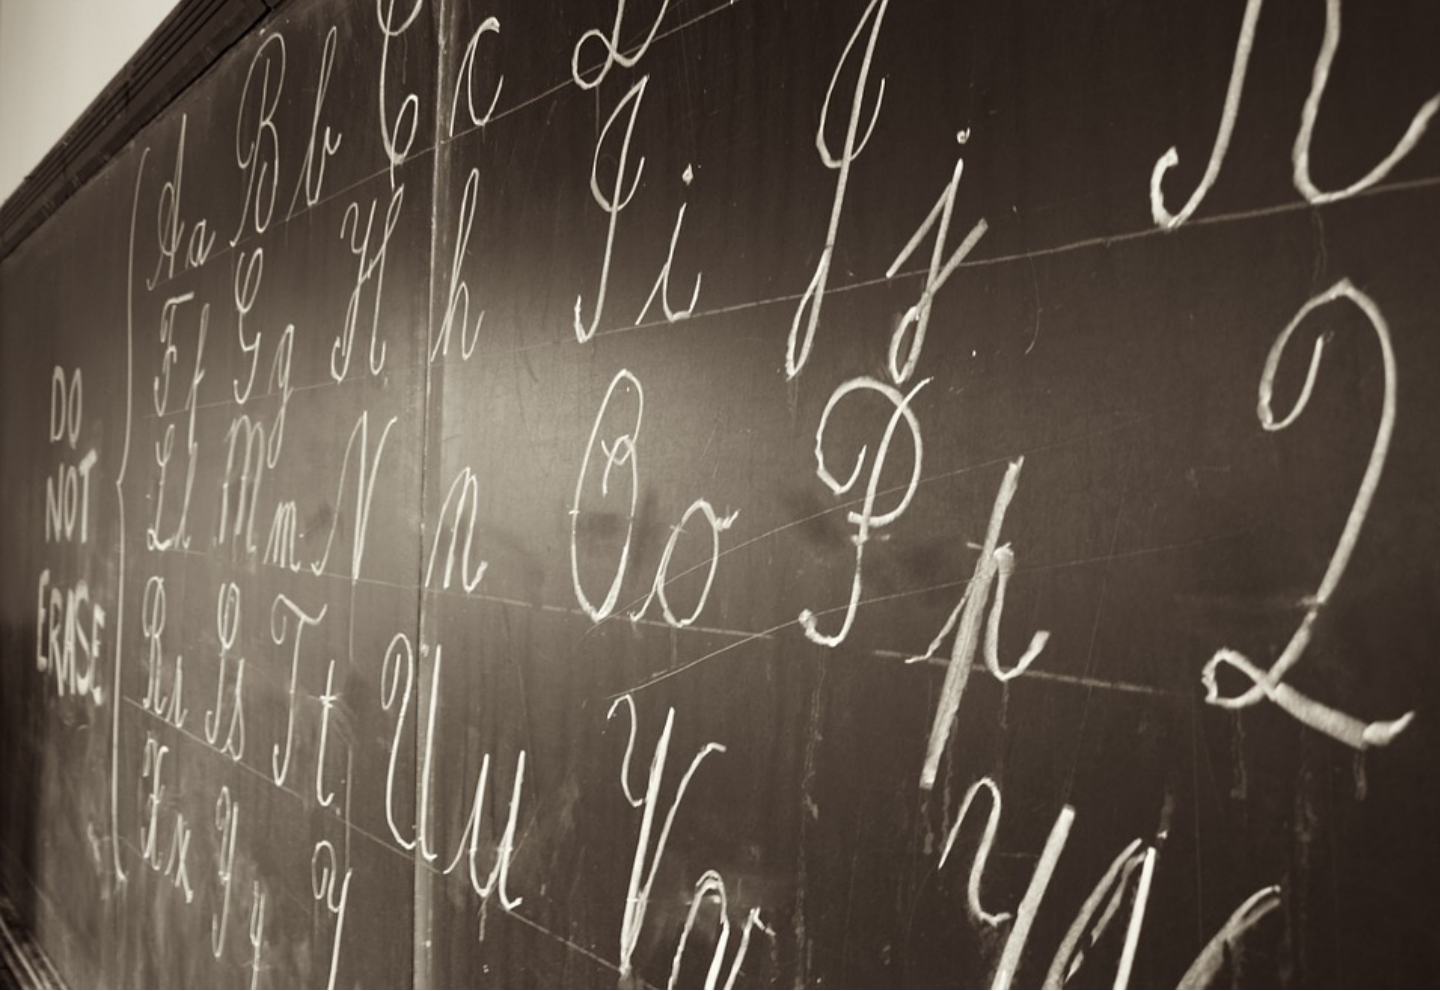 DO
NOT
ERASE
Aa Bb Cc D
Ff Gg Hh Ii Jj K
Ll Mm Nn Oo Pp Q
Rr Ss Tt Uu Vv
Xx Yy